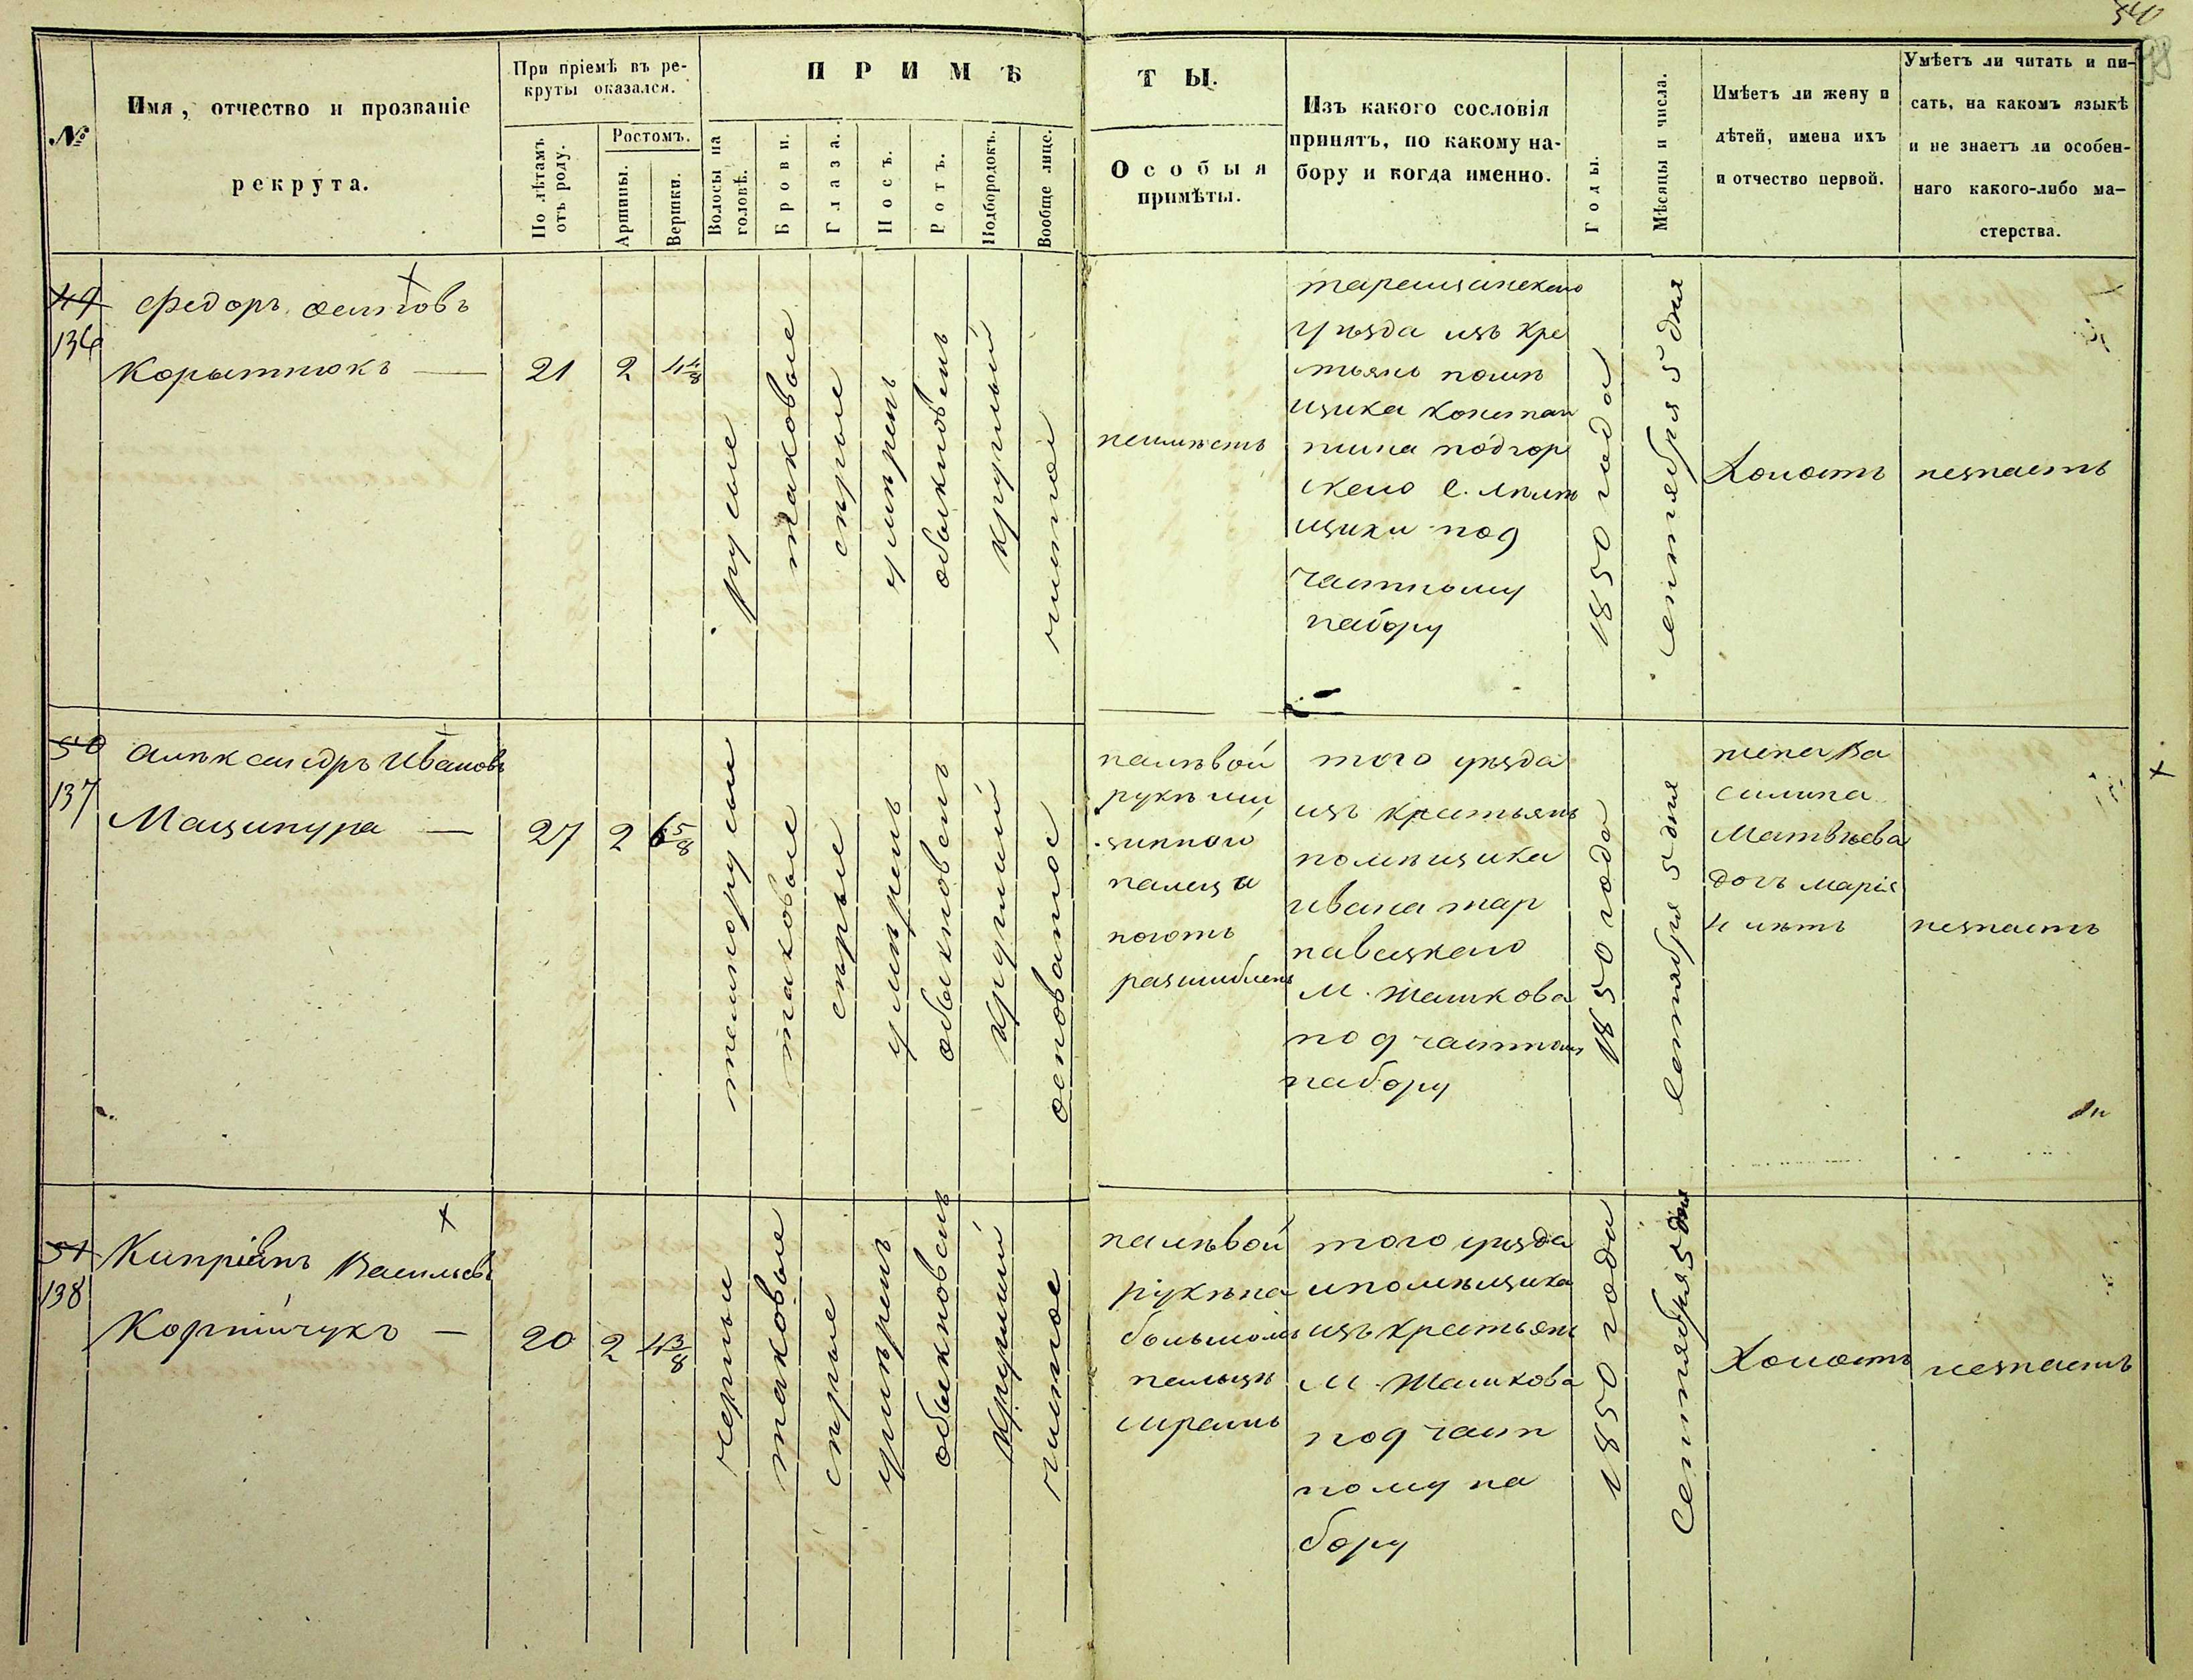 540
98
№
Имя, отчество и прозваніе
рекрута.
При пріемѣ въ ре-
круты оказался.
По лѣтамъ
отъ роду.
Ростомъ.
Аршины.
Вершки.
ПРИМѢ
ТЫ.
Волосы на
головѣ.
Брови.
Глаза.
Носъ.
Ротъ.
Подбородокъ.
Вообще лице.
Особыя
примѣты.
Изъ какого сословія
принятъ, по какому на-
бору и когда именно.
Годы.
Мѣсяцы и числа.
Имѣетъ ли жену и
дѣтей, имена ихъ
и отчество первой.
Умѣетъ ли читать и пи-
сать, на какомъ языкѣ
и не знаетъ ли особен-
наго какого-либо ма-
стерства.
49
136
Федоръ Осиповъ
Корытнюкъ —
21
2
4 4/8
русые
таковые
сѣрые
умѣренъ
обыкновенъ
круглый
чистое
неимѣетъ
таращанскаго
уѣзда изъ кре
тьянъ помѣ
щика Констан
тина Подгор
скаго с.
под
частному
набору
1850 года
Сентября 5 дня
Холостъ
незнаетъ
50
137
Александръ Ивановъ
Маципура —
27
2
6 5/8
темнорусые
таковые
сѣрые
умѣренъ
обыкновенъ
круглый
осповатое
на лѣвой
рукѣ
пальца
ноготь
разшибленъ
того уѣзда
изъ крестьянъ
помѣщика
Ивана Тар
навецкаго
М. Жашкова
под частному
набору
1850 года
Сентября 5 дня
жена Ва
силина
Матвѣева
дочь Марія
4 лѣтъ
незнаетъ
51
138
Кипріянъ Васильевъ
Корнійчукъ —
20
2
4 3/8
черные
таковые
сѣрые
умѣренъ
обыкновенъ
круглый
чистое
на лѣвой
рукѣ на
большомъ
пальцѣ
шрамъ
того уѣзда
и помѣщика
изъ крестьянъ
М. Жашкова
под част
ному на
бору
1850 года
Сентября 5 дня
Холостъ
незнаетъ